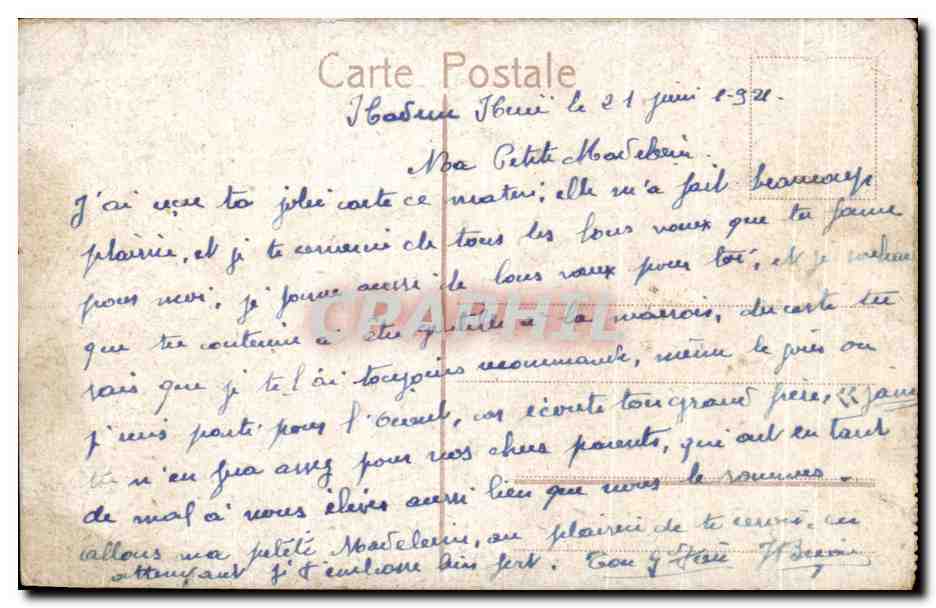 Carte Postale
le 21 juin 1921.
Ma Petite Madelein.
J'ai reçu ta jolie carte ce matin; elle m'a fait beaucoup
plaisir, et je te remerci de tous les bons vœux que tu forme
pour moi, je forme aussi de bons vœux pour toi, et je
que tu continue à être gentille à la maison, du reste tu
sais que je te l'ai toujours recommandé, même le jour ou
j'suis parti pour l'Orient, car écoute ton grand frère, «jamais
tu n'en fera assez pour nos chers parents, qui ont eu tant
de mal à nous élever aussi bien que nous le sommes.
allons ma petite Madelein, au plaisir de te revoir, en
attendant je t'embrasse bien fort. Ton g Frère
CPAPHIL